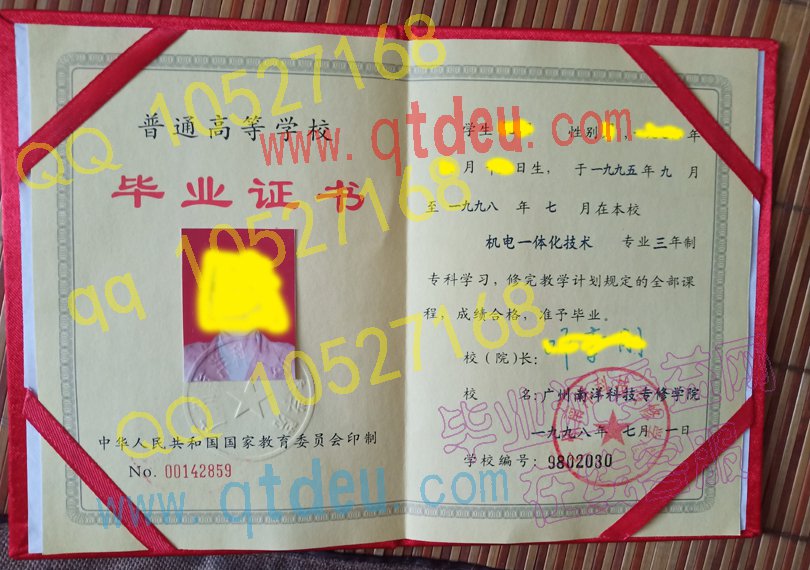 普通高等学校
毕业证书
中华人民共和国国家教育委员会印制
No. 00142859
学生 性别 , 年
月 日生, 于一九九五年九月
至一九九八年七月在本校
机电一体化技术 专业三年制
专科学习, 修完教学计划规定的全部课
程, 成绩合格, 准予毕业。
校(院)长:
校 名: 广州南洋科技专修学院
一九九八年七月一日
学校编号: 9802030
QQ 10527168
www.qtdeu.com
qq 10527168
QQ 10527168
www.qtdeu.com